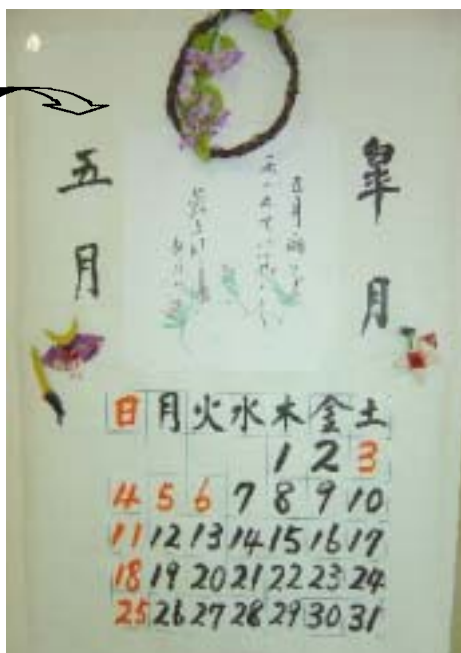 皐月
五月
日 月 火 水 木 金 土
1 2 3
4 5 6 7 8 9 10
11 12 13 14 15 16 17
18 19 20 21 22 23 24
25 26 27 28 29 30 31